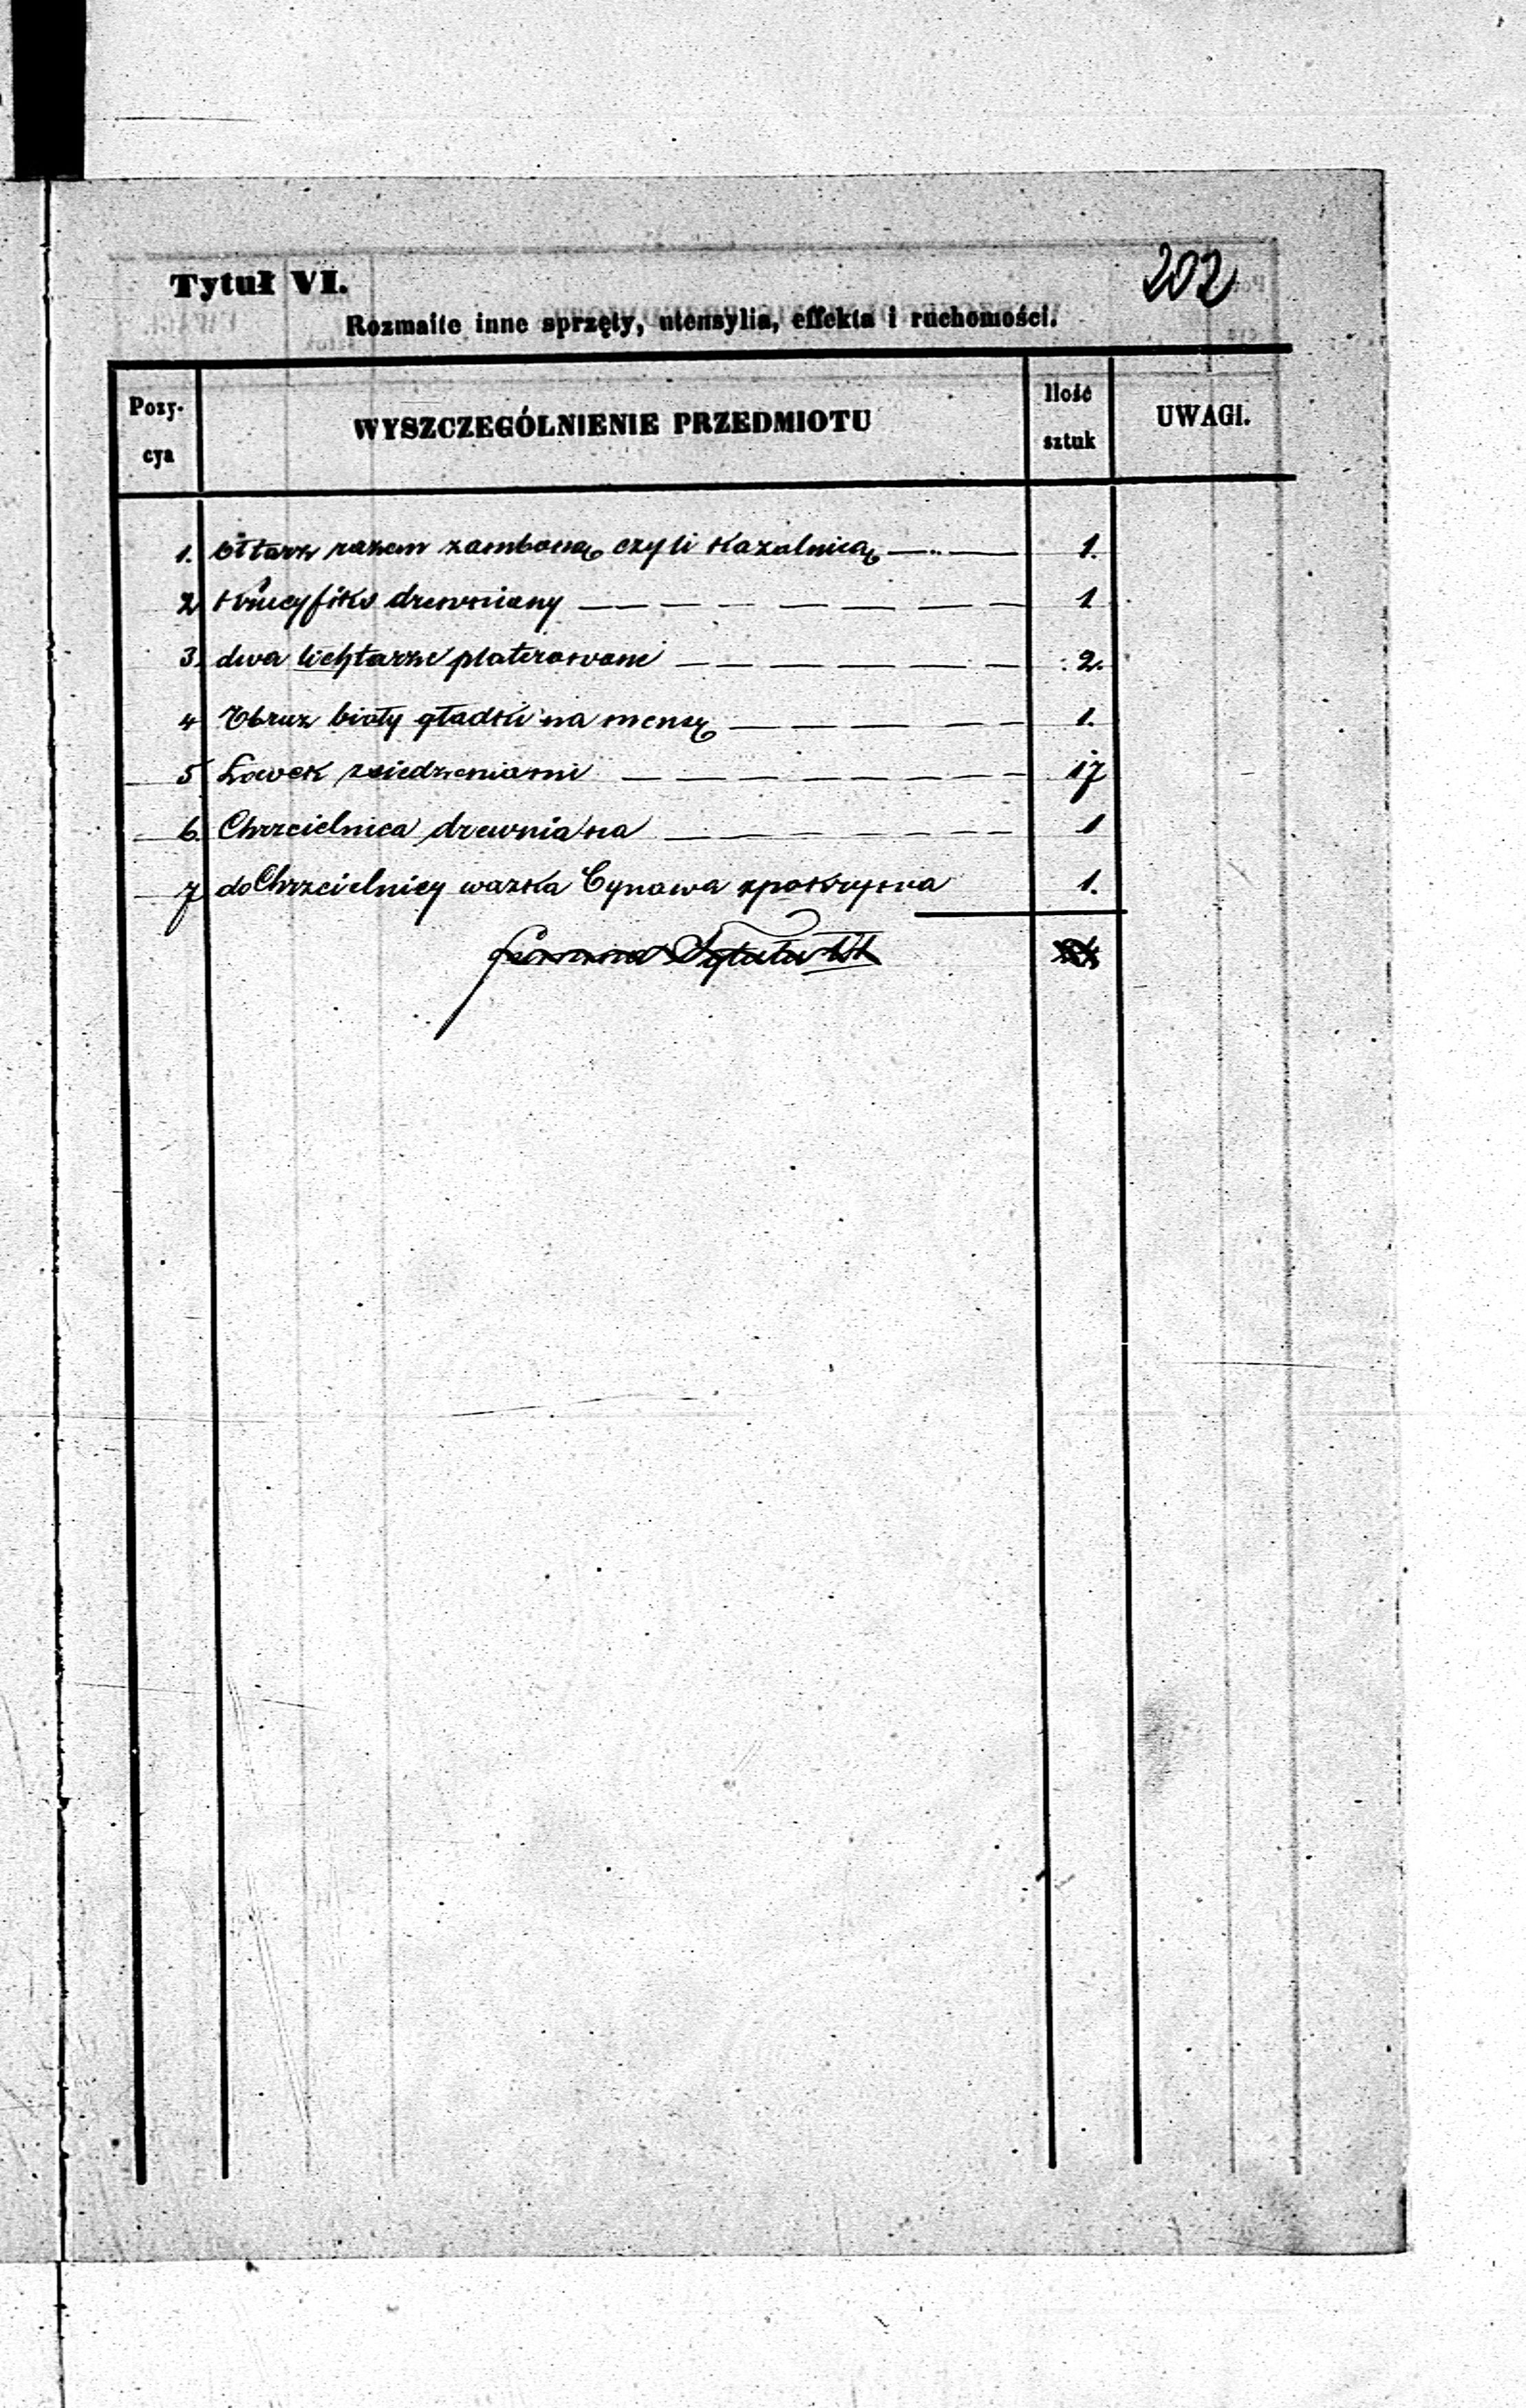 202
Tytuł VI.
Rozmaite inne sprzęty, utensylia, effekta i ruchomości.
Pozy-cya WYSZCZEGÓLNIENIE PRZEDMIOTU Ilość sztuk UWAGI.
1. Ołtarz razem zamboną czyli Kazalnicą 1.
2 Krucyfiks drewniany 1
3. dwa lichtarze platerowane 2.
4 Obruz biały gładki na mensę 1.
5 Ławek zsiedzeniami 17
6. Chrzcielnica drewniana 1
7 do Chrzcielnicy wazka Cynowa zpokrywa 1.
Summa Tytułu